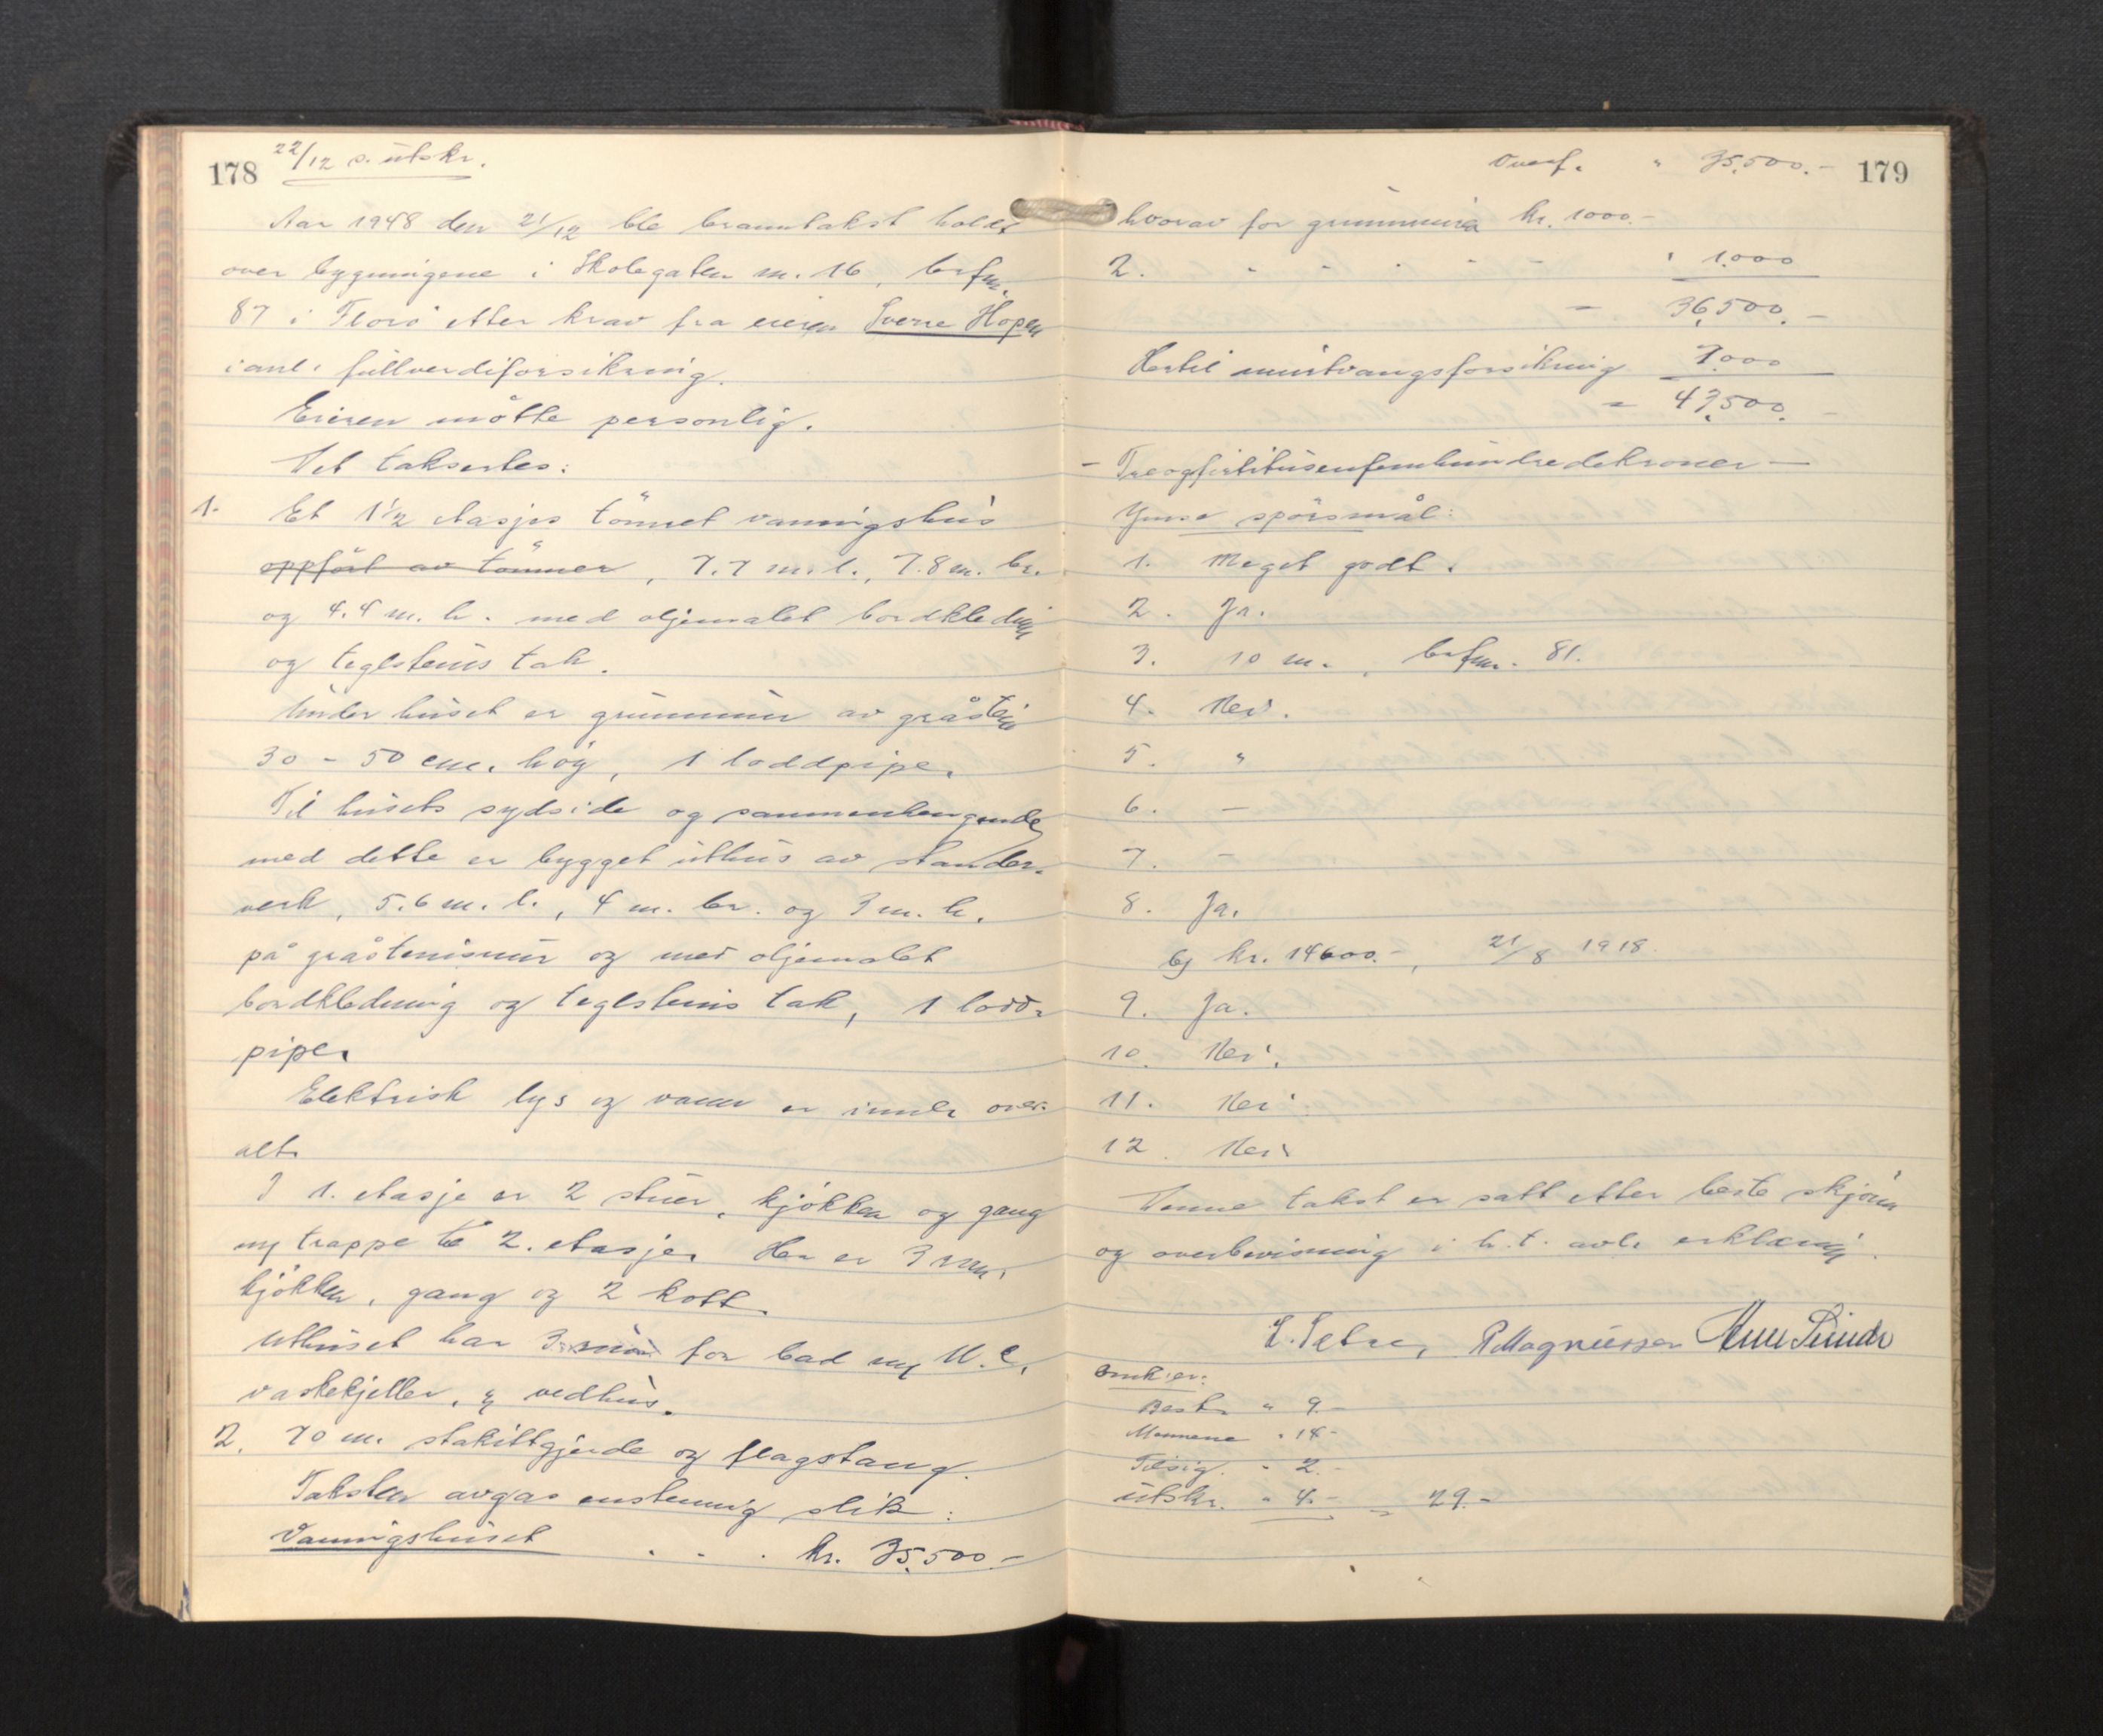 178
22/12 s. utskr.
Aar 1948 den 21/12 ble branntakst holdt
over bygningene i Skolegaten nr. 16, brfnr.
87 i Florö etter krav fra eieren Sverre Hopen
i anl. fullverdiforsikring.
Eieren møtte personlig.
Det taksertes:
1. Et 1½ etasjes tömret vaaningshus
oppfört av tömmer, 7.7 m. l., 7.8 m. br.
og 4.4 m. h. med oljemalet bordkledning
og teglsteins tak.
Under huset er grunnmur av gråstein
30 - 50 cm. höy, 1 loddpipe.
Til husets sydside og sammenhengende
med dette er bygget uthus av stander-
verk, 5.6 m. l., 4 m. br. og 3 m. h.
på gråstensmur og med oljemalet
bordkledning og teglsteins tak, 1 lodd-
pipe.
Elektrisk lys og vann er innlr over-
alt.
I 1. etasje er 2 stuer, kjökken og gang
m/ trappe til 2. etasje. Her er 3 rum,
kjökken, gang og 2 kott.
Uthuset har 3 rum for bad m/ W.C,
vaskekjeller, & vedhus.
2. 70 m. stakittgjerde og flagstang.
Taksten avgas enstemmig slik:
Vaaningshuset . . . kr. 35.500.-
179
Overf. " 35.500.-
hvorav for grunnmura kr. 1000.-
2. " " " " " " 1.000
= 36.500.-
Hertil mintvangsforsikring 7.000
= 43.500.-
- Treogførtitusenfemhundredekroner -
Ymse spörsmål:
1. Meget godt.
2. Ja.
3. 10 m., brfnr. 81.
4. Nei.
5. "
6. -
7. -
8. Ja.
b) kr. 14600.-, 21/8 1918.
9. Ja.
10. Nei.
11. Nei.
12. Nei.
Denne takst er satt etter beste skjönn
og overbevisning i h.t. avlr erklæring.
E. Sætre, R Magnussen
Omk:er:
Best. " 9.-
Mennene " 14-
Tilsig. " 2.-
utskr. " 4.- = 29.-